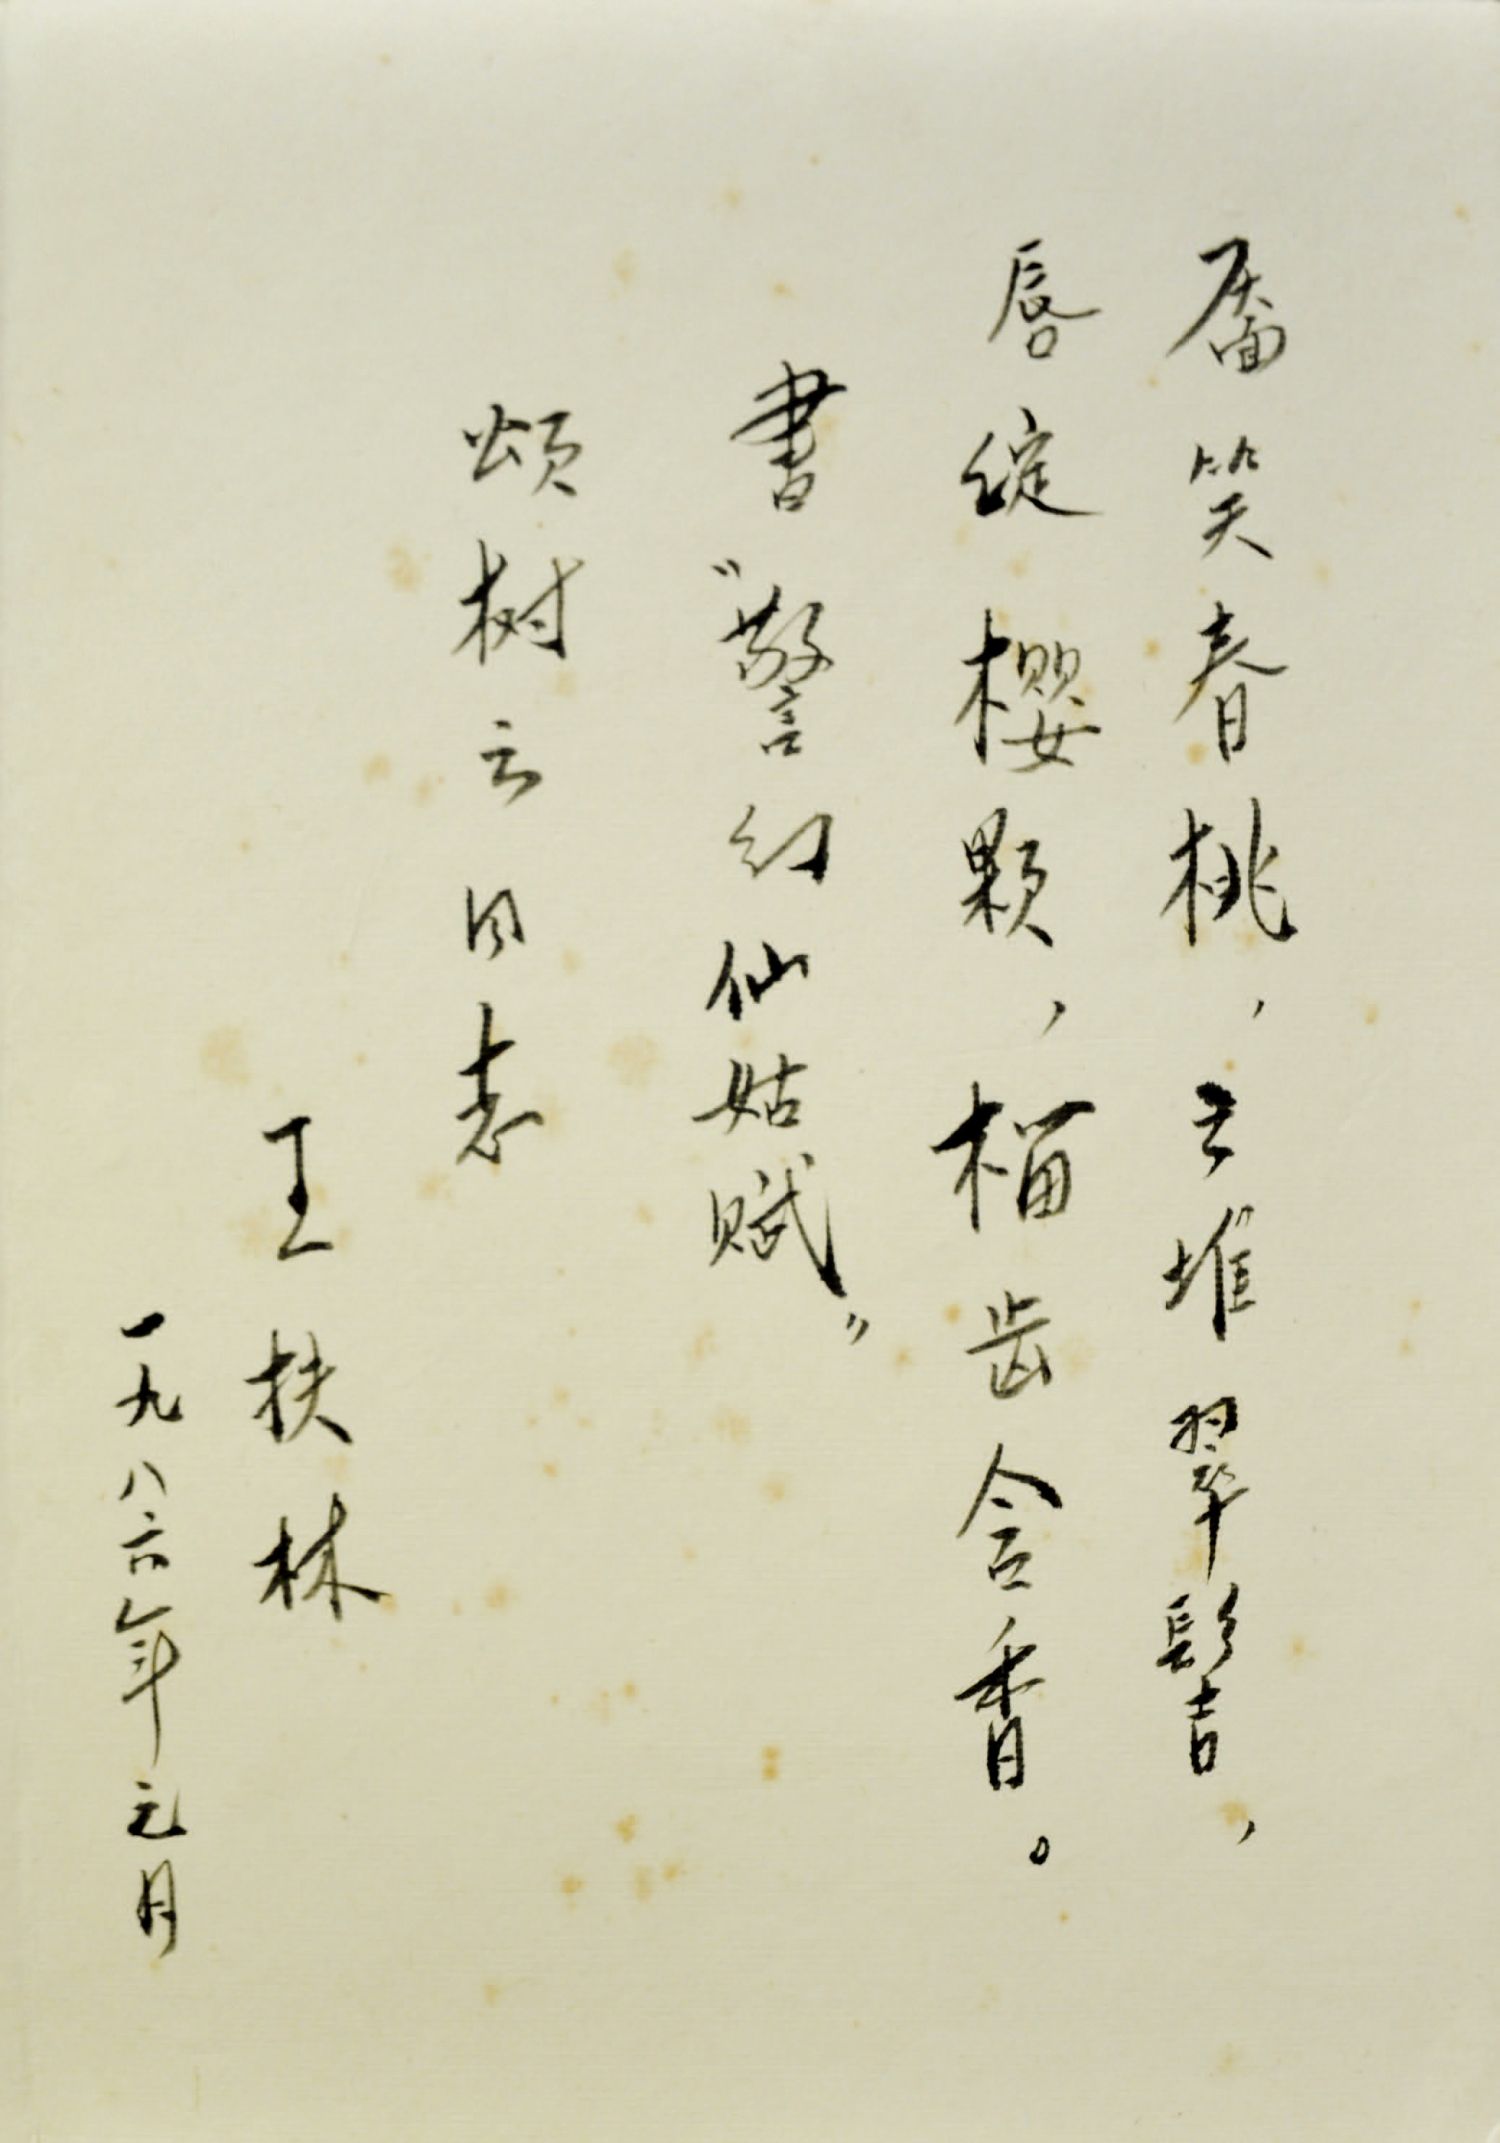 靥笑春桃，云堆翠髻，
唇绽樱颗，榴齿含香。
書“警幻仙姑赋”
颂树云同志
王扶林
一九八六年元月